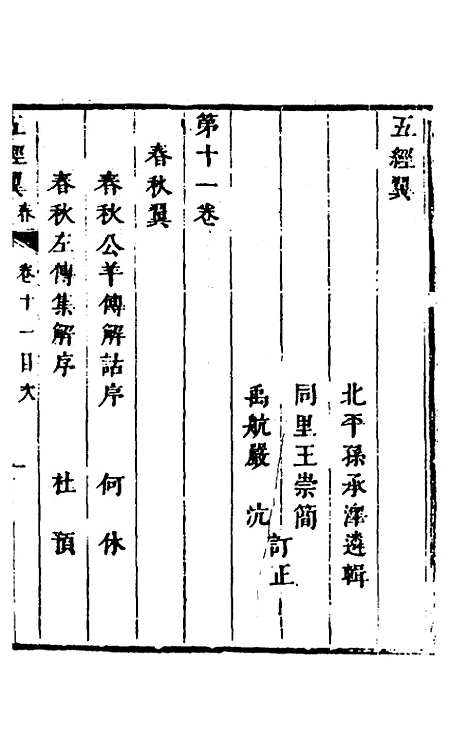 五經翼
北平孫承澤遴輯
同里王崇簡
禹航嚴沆
訂正
第十一卷
春秋翼
春秋公羊傳解詁序 何休
春秋左傳集解序 杜預
五經翼 春 卷十一目次 一